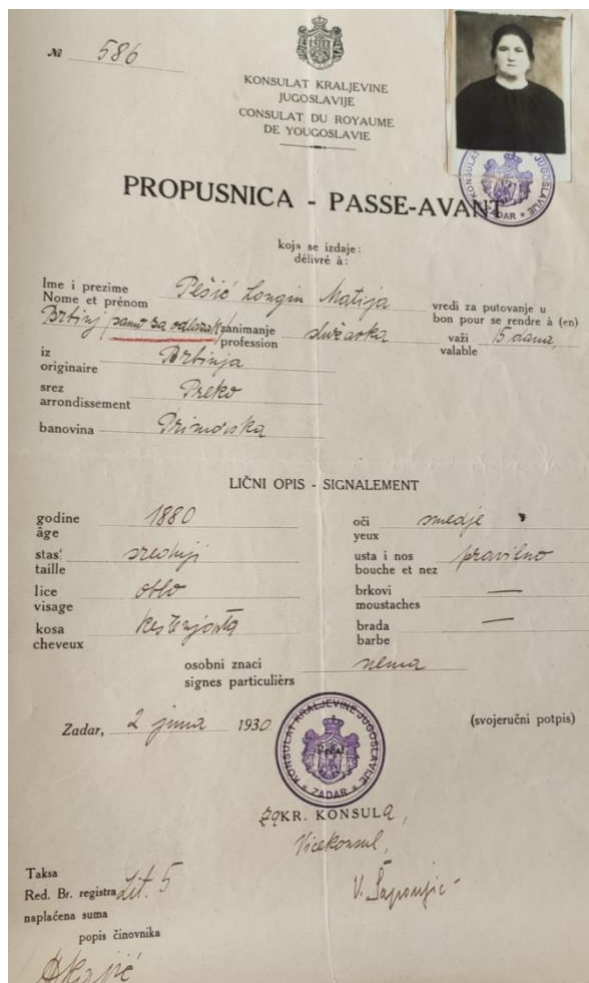 № 586
KONSULAT KRALJEVINE
JUGOSLAVIJE
CONSULAT DU ROYAUME
DE YOUGOSLAVIE
PROPUSNICA - PASSE-AVANT
koja se izdaje:
délivré à:
Ime i prezime
Nome et prénom Pešić Longin Matija
vredi za putovanje u
bon pour se rendre à (en)
Brbinj /samo za odlazak/ zanimanje
profession služavka važi
valable 15 dana,
iz
originaire Brbinja
srez
arrondissement Preko
banovina Primorska
LIČNI OPIS - SIGNALEMENT
godine
âge 1880
oči
yeux smedje
stas
taille srednji
usta i nos
bouche et nez pravilno
lice
visage oblo
brkovi
moustaches —
kosa
cheveux
brada
barbe —
osobni znaci
signes particuliérs nema
Zadar, 2 juna 1930
(svojeručni potpis)
KONSULAT KRALJEVINE JUGOSLAVIJE
ZADAR
KR. KONSULA,
Vicekonsul,
Taksa
Red. Br. registra Lit. 5
naplaćena suma
popis činovnika